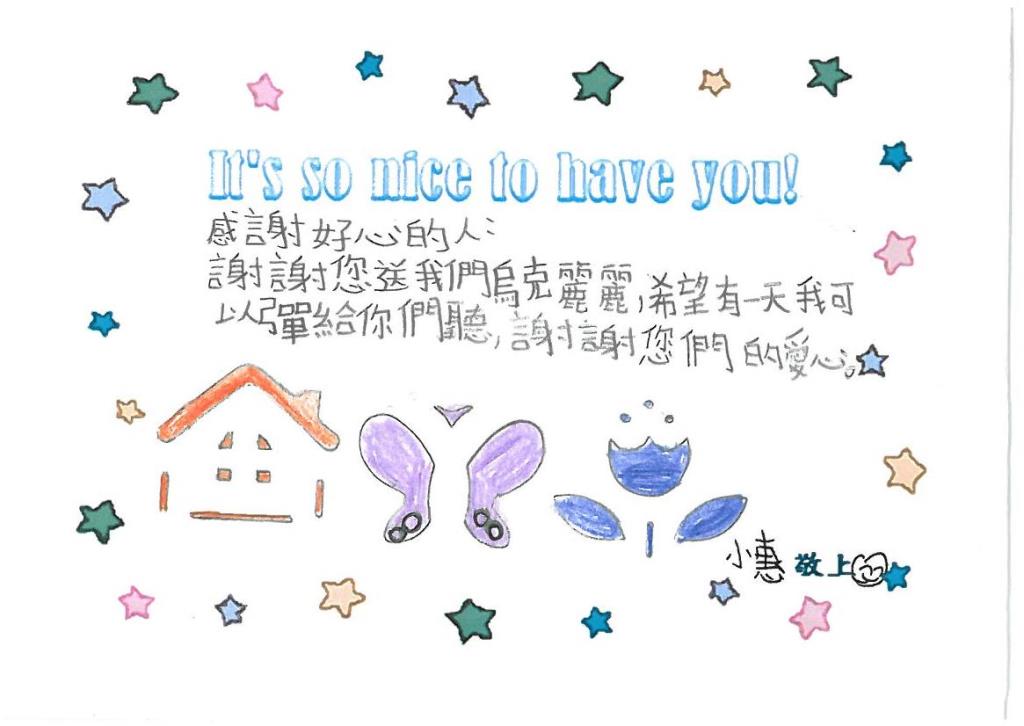 It's so nice to have you!
感謝好心的人:
謝謝您送我們烏克麗麗,希望有一天我可
以彈給你們聽,謝謝您們的愛心。
小惠 敬上